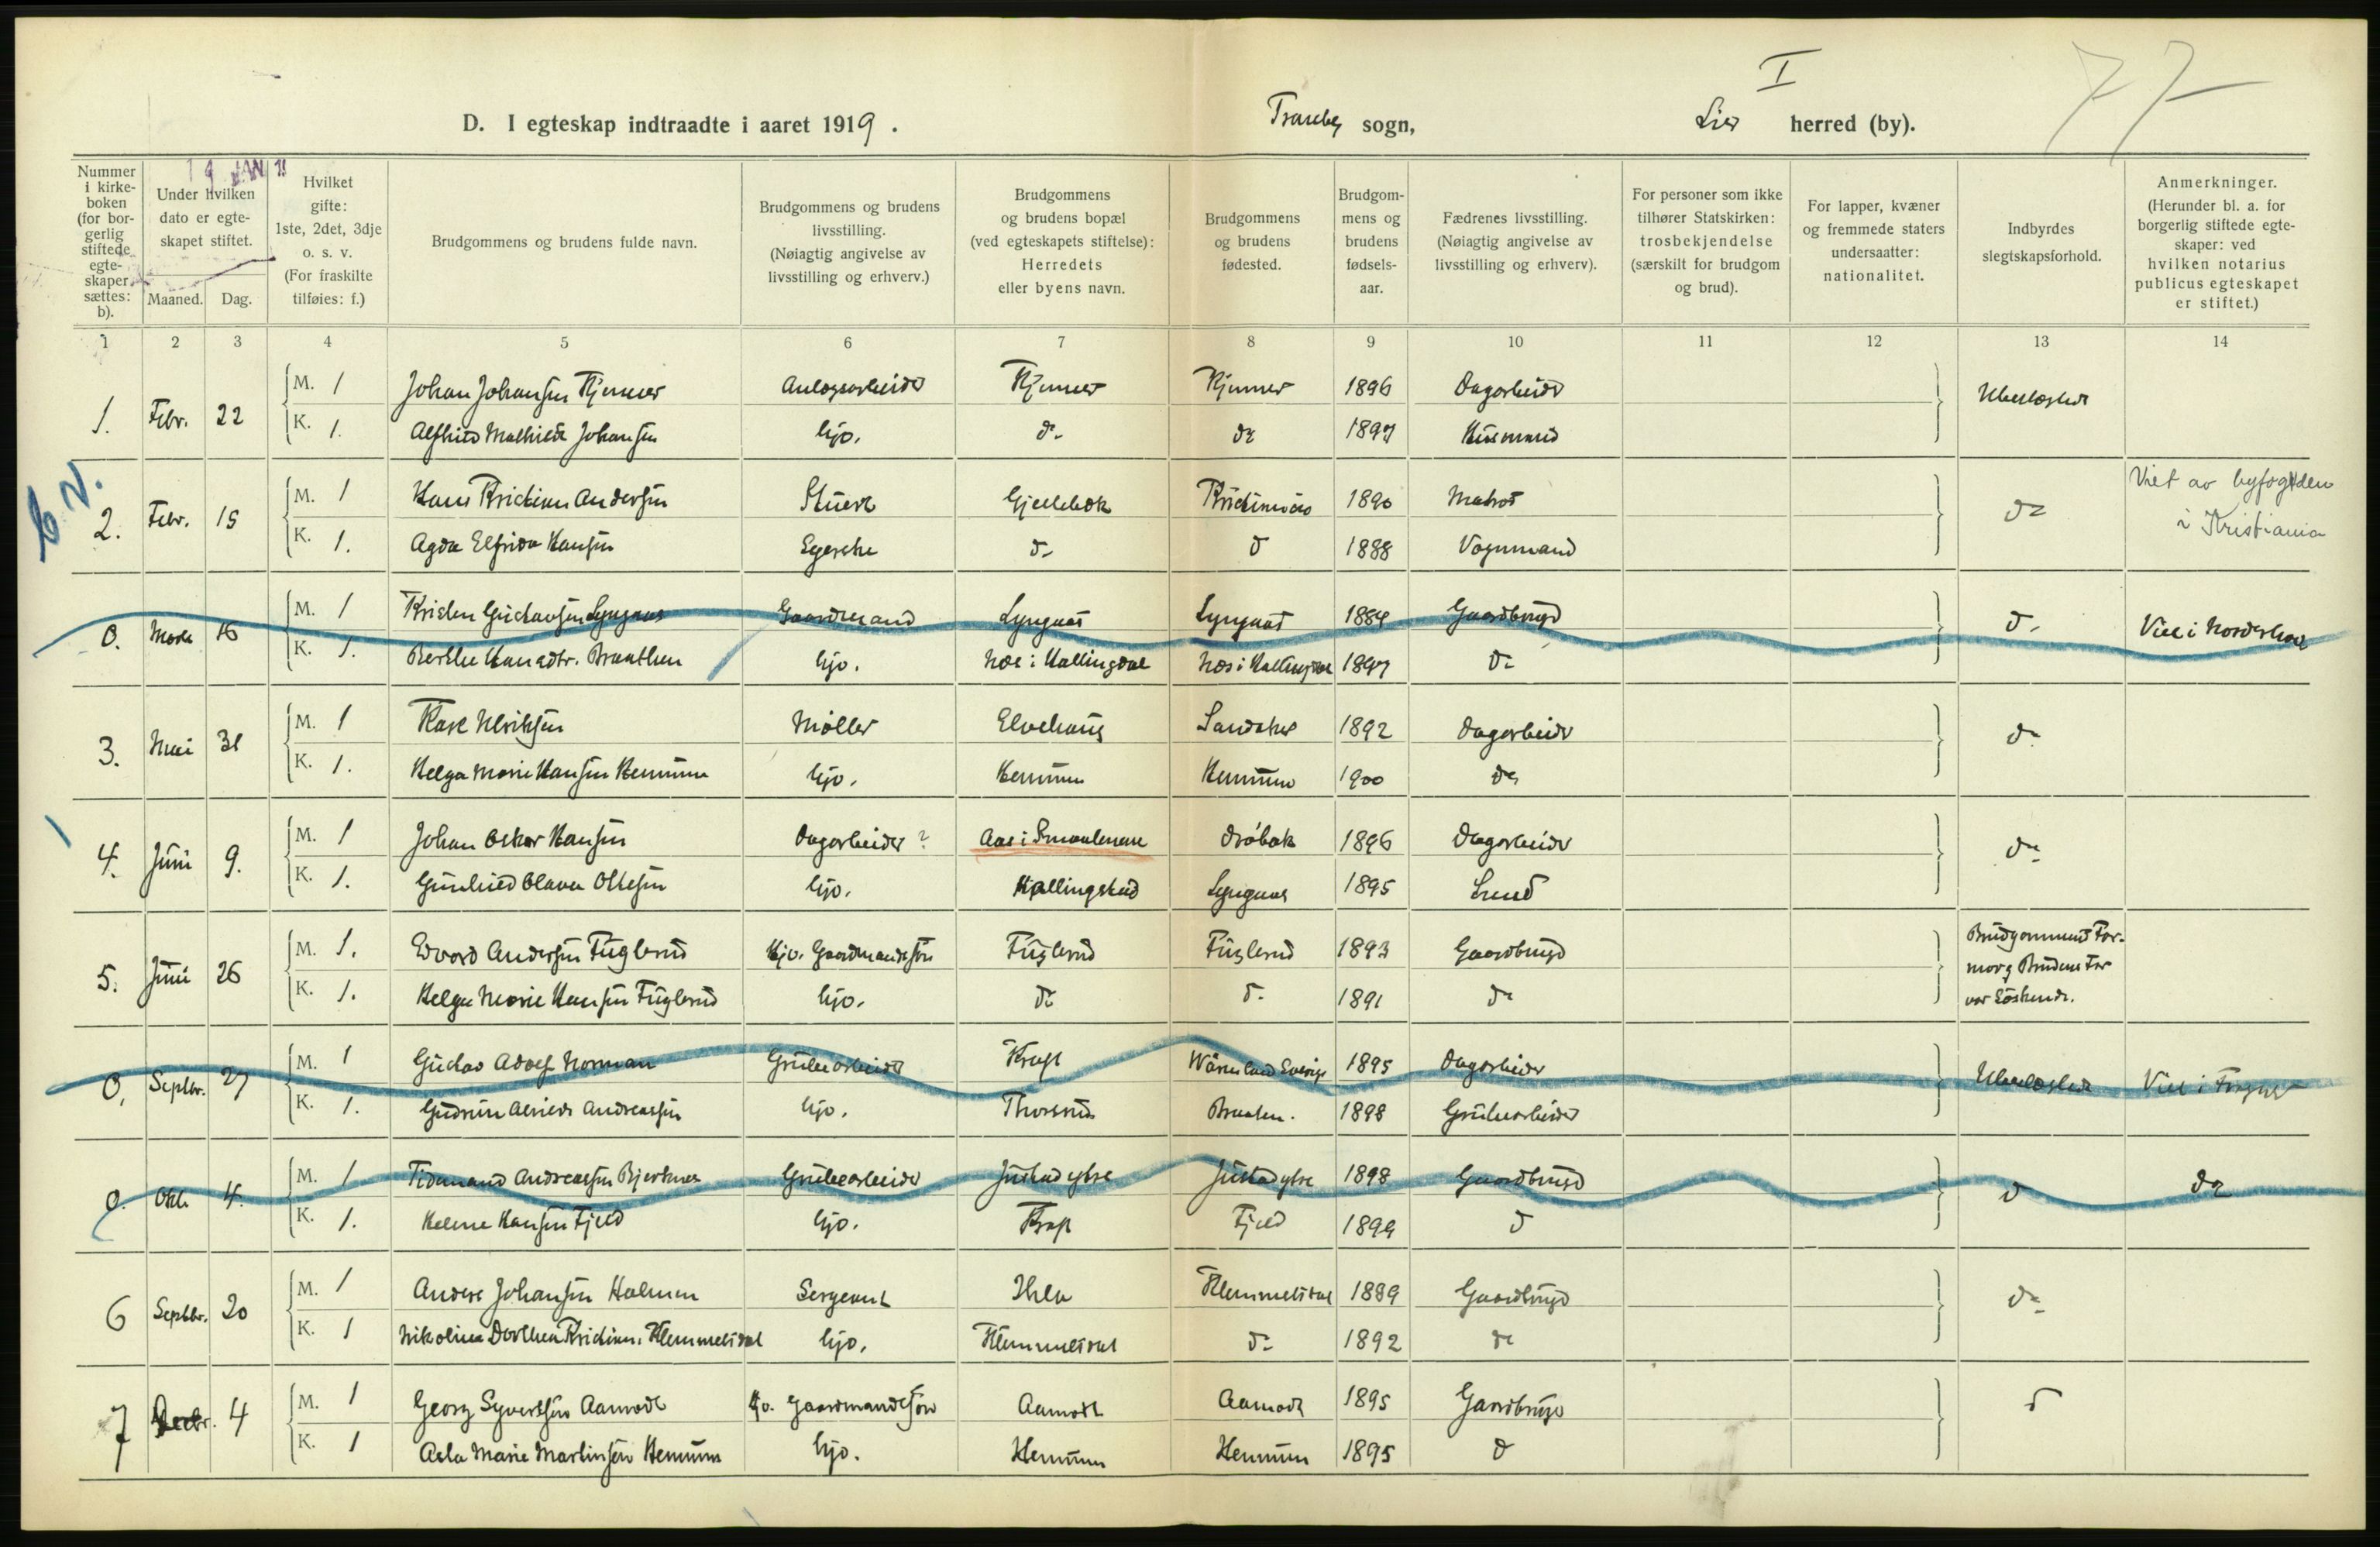 I
77
D. I egteskap indtraadte i aaret 1919. Tranby sogn, Lier herred (by).
19 JAN
Nummer i kirkeboken (for borgerlig stiftede egteskaper sættes: b).
Under hvilken dato er egteskapet stiftet. Maaned. Dag.
Hvilket gifte: 1ste, 2det, 3dje o. s. v. (For fraskilte tilføies: f.)
Brudgommens og brudens fulde navn.
Brudgommens og brudens livsstilling. (Nøiagtig angivelse av livsstilling og erhverv.)
Brudgommens og brudens bopæl (ved egteskapets stiftelse): Herredets eller byens navn.
Brudgommens og brudens fødested.
Brudgommens og brudens fødselsaar.
Fædrenes livsstilling. (Nøiagtig angivelse av livsstilling og erhverv).
For personer som ikke tilhører Statskirken: trosbekjendelse (særskilt for brudgom og brud).
For lapper, kvæner og fremmede staters undersaatter: nationalitet.
Indbyrdes slegtskapsforhold.
Anmerkninger. (Herunder bl. a. for borgerlig stiftede egteskaper: ved hvilken notarius publicus egteskapet er stiftet.)
1 2 3 4 5 6 7 8 9 10 11 12 13 14
1. Febr. 22 M. 1 Johan Johansen Kjenner Anlægsarbeider Kjenner Kjenner 1896 Dagarbeider Ubeslægtet
K. 1. Alfhild Mathilde Johansen hjv. do do 1897 Husmand
2. Febr. 15 M. 1 Hans Kristian Andersen Stuert Gjellebæk Kristiania 1890 Matros do Viet av byfogden i Kristiania
K. 1. Agda Elfrida Hansen Syerske do do 1888 Vognmand
0. Marts 16 M. 1 Kristen Gustavsen Lyngaas Gaardmand Lyngaas Lyngaas 1889 Gaardbruger do Viet i Norderhov
K. 1. Berthe Hansdtr. Braathen hjv. Næs i Hallingdal Næs i Hallingdal 1897 do
3. Mai 31 M. 1 Karl Ulriksen Møller Elvehaug Sandaker 1892 Dagarbeider do
K. 1. Helga Marie Hansen Hennum hjv. Hennum Hennum 1900 do
4. Juni 9. M. 1 Johan Oskar Hansen Dagarbeider ? Aas i Smaalenene Drøbak 1896 Dagarbeider do
K. 1. Gunhild Olava Olsen hjv. Kjellingstad Lyngaas 1895 Smed
5. Juni 26 M. 1. Edvard Andersen Fuglerud Hjv. Gaardmandssøn Fuglerud Fuglerud 1893 Gaardbruger Brudgommens Farmor og Brudens Far var Søskende.
K. 1. Helga Marie Hansen Fuglerud hjv. do do 1891 do
0. Septbr. 27 M. 1 Gustav Adolf Norman Grubearbeider Kraft Wärmland Sverige 1895 Dagarbeider Ubeslægtet Viet i
K. 1. Gudrun Andreassen hjv. Thorsrud Braaten. 1898 Grubearbeider
0. Okt. 4. M. 1 Tidemand Andreassen Bjerknes Grubearbeider 1898 Gaardbruger do do
K. 1. Helene Hansen Fjeld hjv. Fjeld 1899 do
6 Septbr. 20 M. 1 Anders Johansen Holmen Sergeant Klemmetsdal 1889 Gaardbruger do
K. 1 Nikolina Dorthea Kristians. Klemmetsdal hjv. Klemmetsdal do 1892 do
7 Decbr. 4 M. 1 Georg Syvertsen Aamodt Hjv. Gaardmandssøn Aamodt Aamodt 1895 Gaardbruger do
K. 1 Asla Marie Martinsen Hennum hjv. Hennum Hennum 1895 do